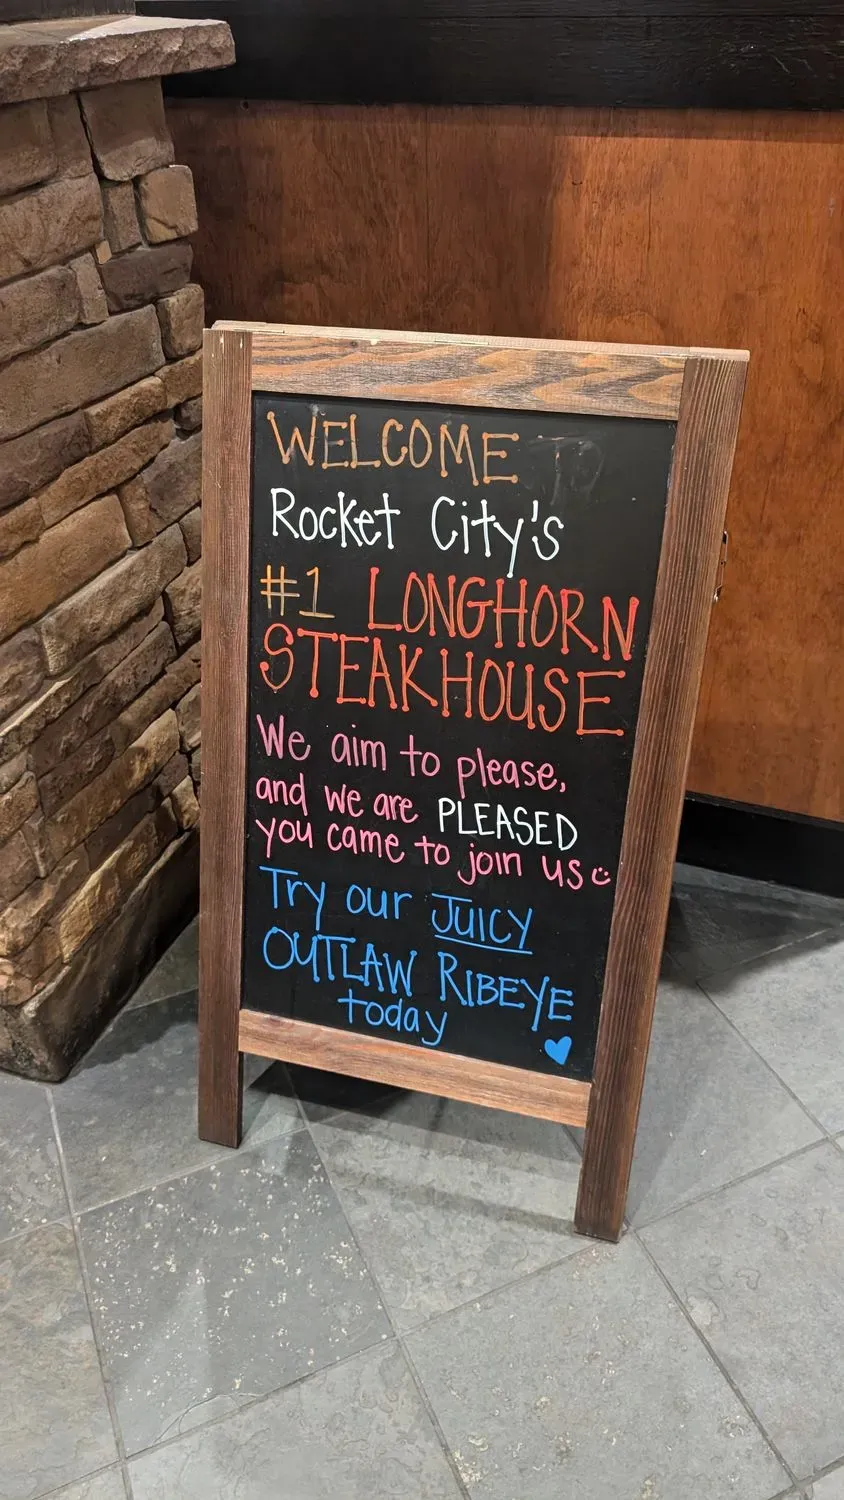 WELCOME
Rocket City's
#1 LONGHORN
STEAKHOUSE
We aim to please,
and we are PLEASED
you came to join us
Try our JUICY
OUTLAW RIBEYE
today